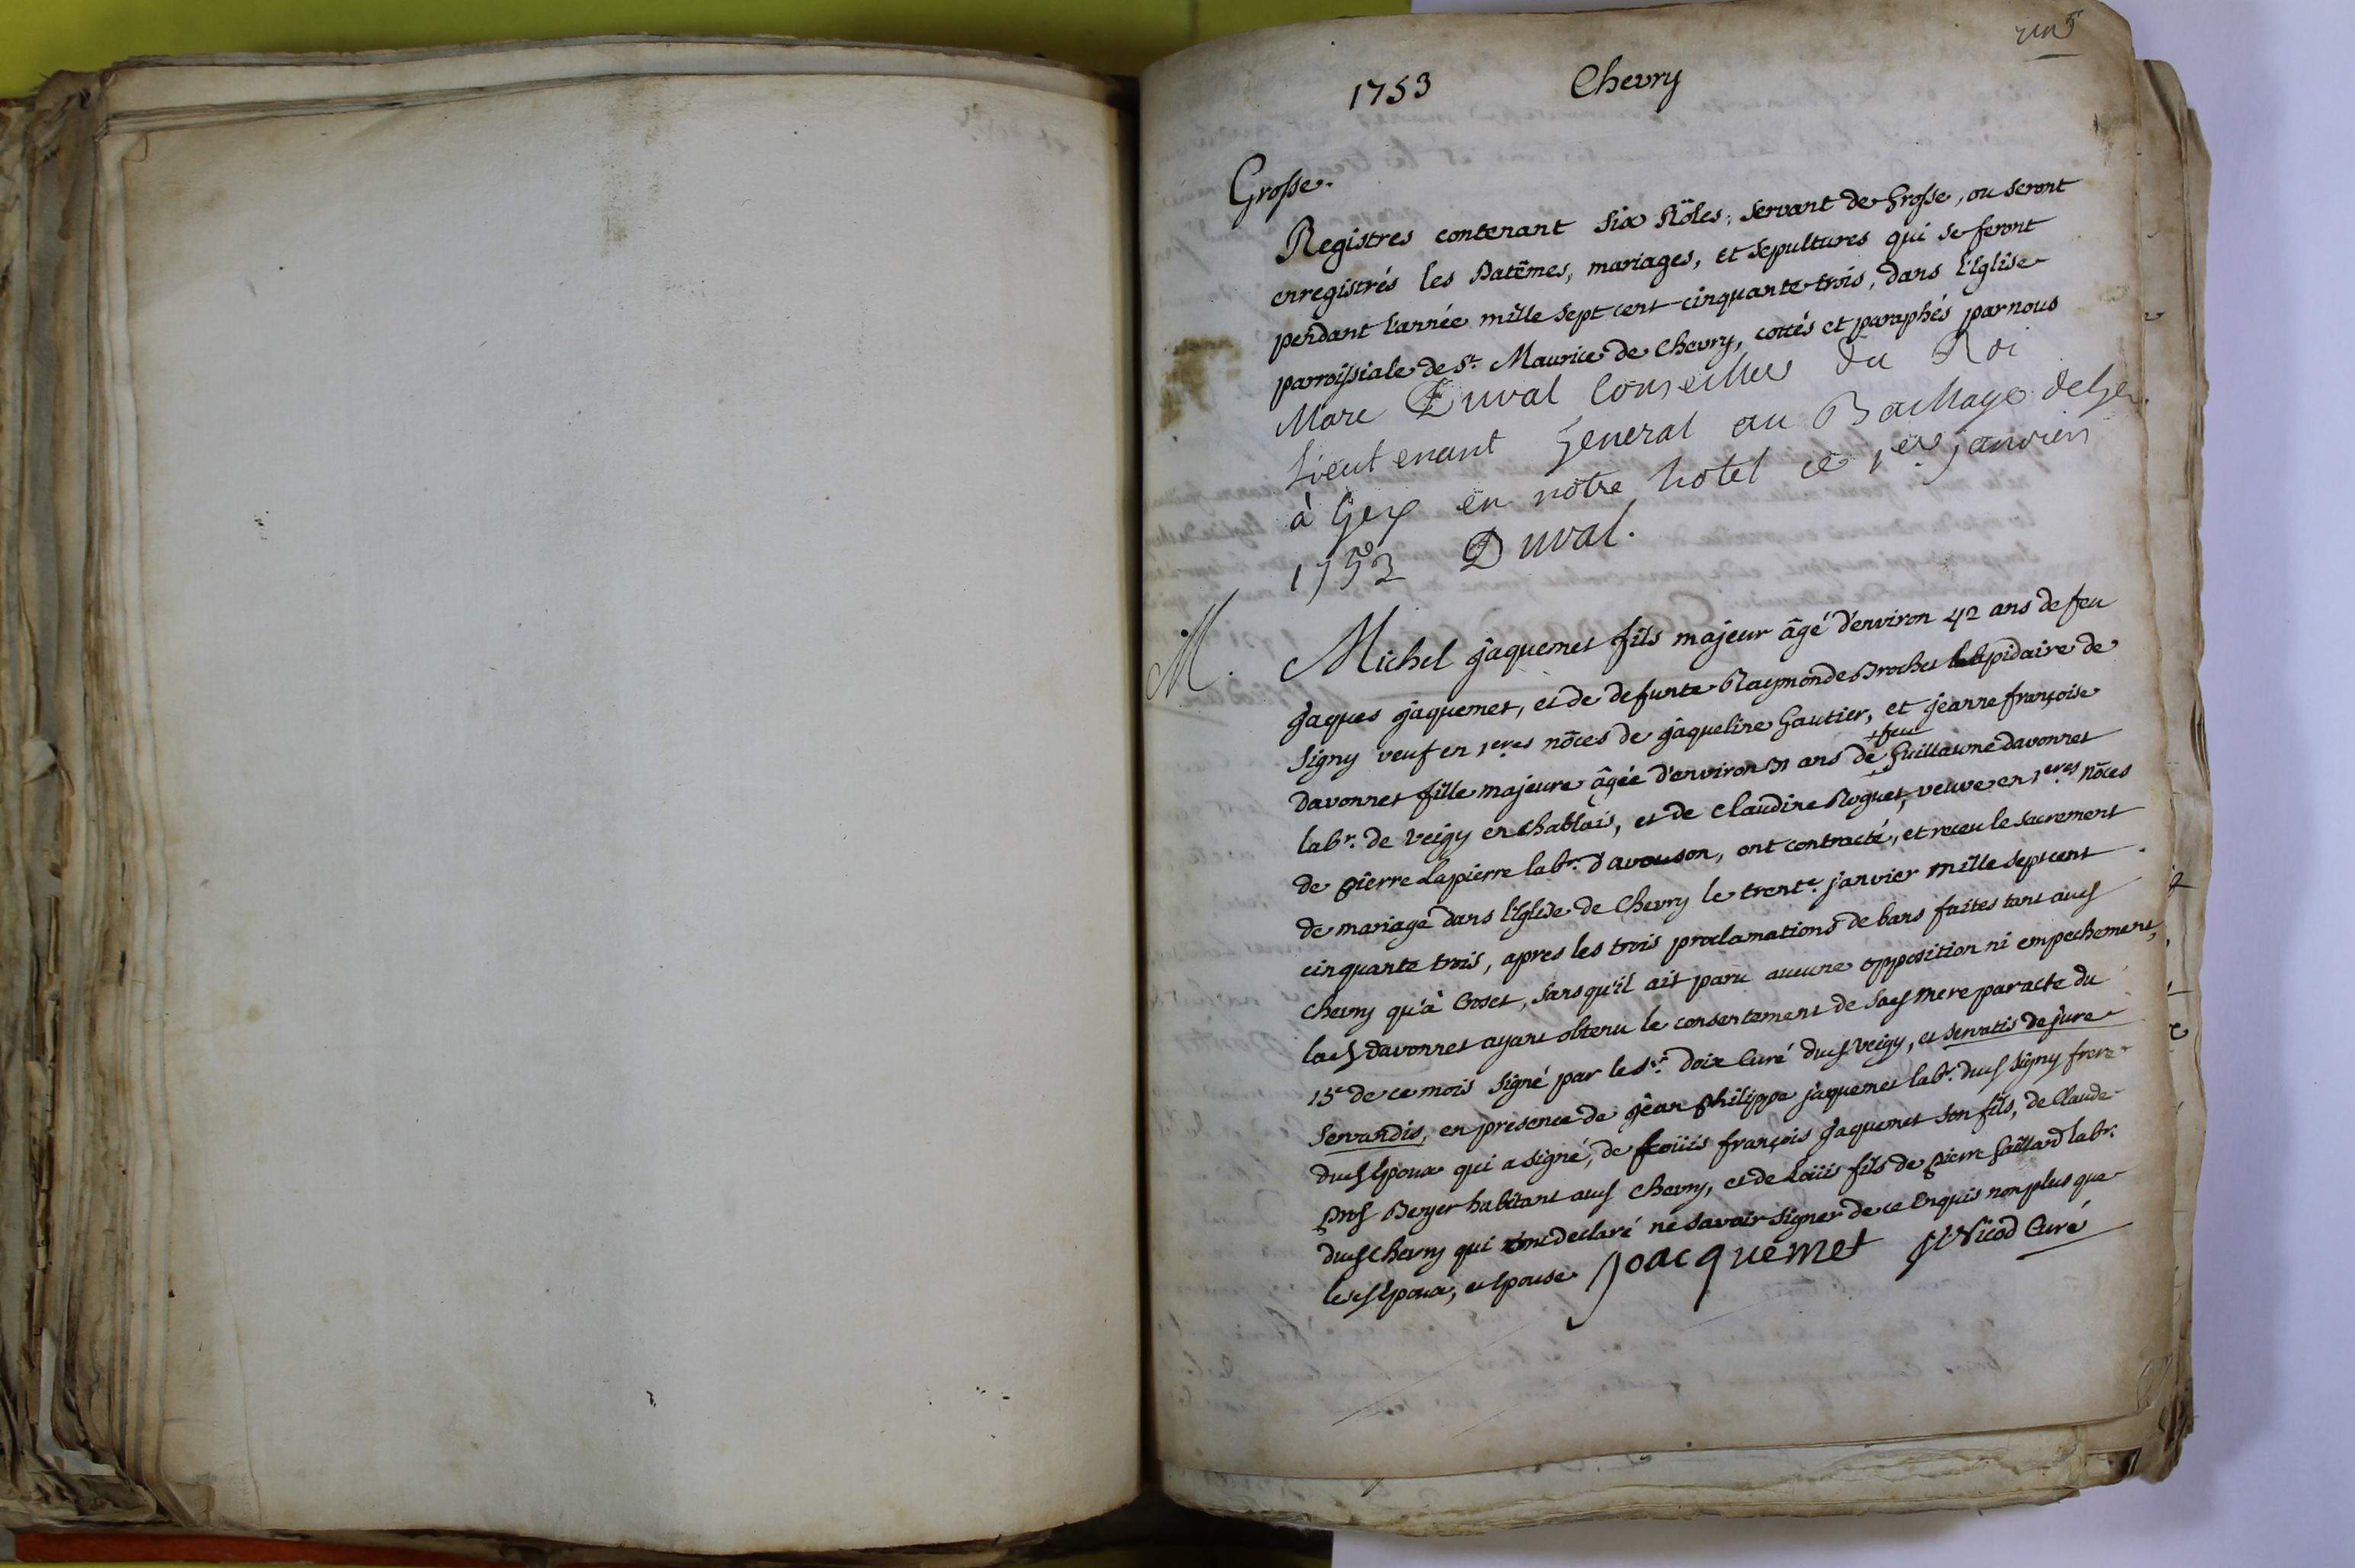 1753 Chevry
Grosse.
Registres contenant six Rôles, servant de Grosse, ou seront
enregistrés les Batêmes, mariages, et sepultures qui se feront
pendant l'année mille sept cent cinquante trois, dans l'Eglise
parroissiale de St. Maurice de Chevry, cottés et paraphés par nous
Marc Duval Conseiller du Roi
Lieutenant General au Bailliage de Gex.
à Gex en notre hotel ce 1er janvier
1753 Duval.
M. Michel jaquemet fils majeur âgé d'environ 42 ans de feu
jaques jaquemet, et de defunte Raymonde Brochet lapidaire de
Signy veuf en 1eres nôces de jaqueline Gautier, et jeanne françoise
davonnet fille majeure âgée d'environ 31 ans de +feu Guillaume davonnet
labr. de Veigy en Chablais, et de Claudine Roguet, veuve en 1eres nôces
de pierre Lapierre labr. d'avouson, ont contracté, et receu le sacrement
de mariage dans l'Eglise de Chevry le trente. janvier mille sept cent
cinquante trois, apres les trois proclamations de bans faites tant aud
Chevry qu'à Croset, sans qu'il ait paru aucune opposition ni empechement,
lad davonnet ayant obtenu le consentement de sad mere par acte du
15e de ce mois signé par le Sr. Doix Curé dud Veigy, et servatis de jure
servandis, en presence de jean philippe jaquemet labr. dud Signy frere
dud Epoux qui a signé, de Loüis françois jaquemet son fils, de Claude
Benjer habitant aud Chevry, et de Loüis fils de pierre Gaillard labr.
dud Chevry qui ont declaré ne savoir signer de ce Enquis non plus que
lesd Epoux, et Epouse jacquemet Nicod Curé